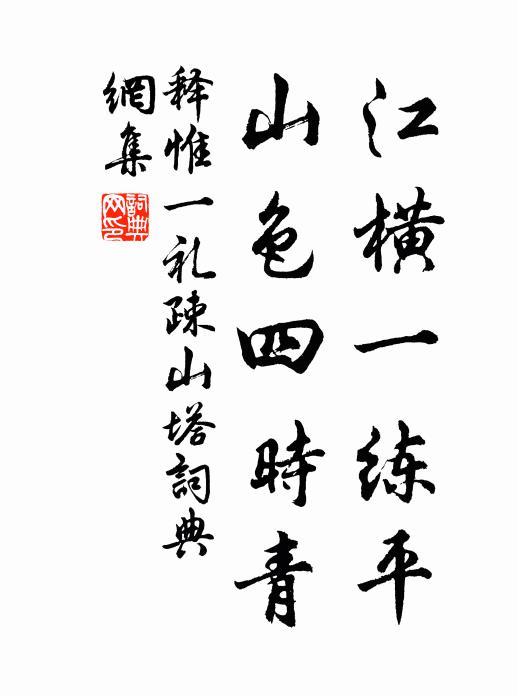 江横一练平
山色四時青
释惟一礼疎山塔詞典
網集
詞典网印